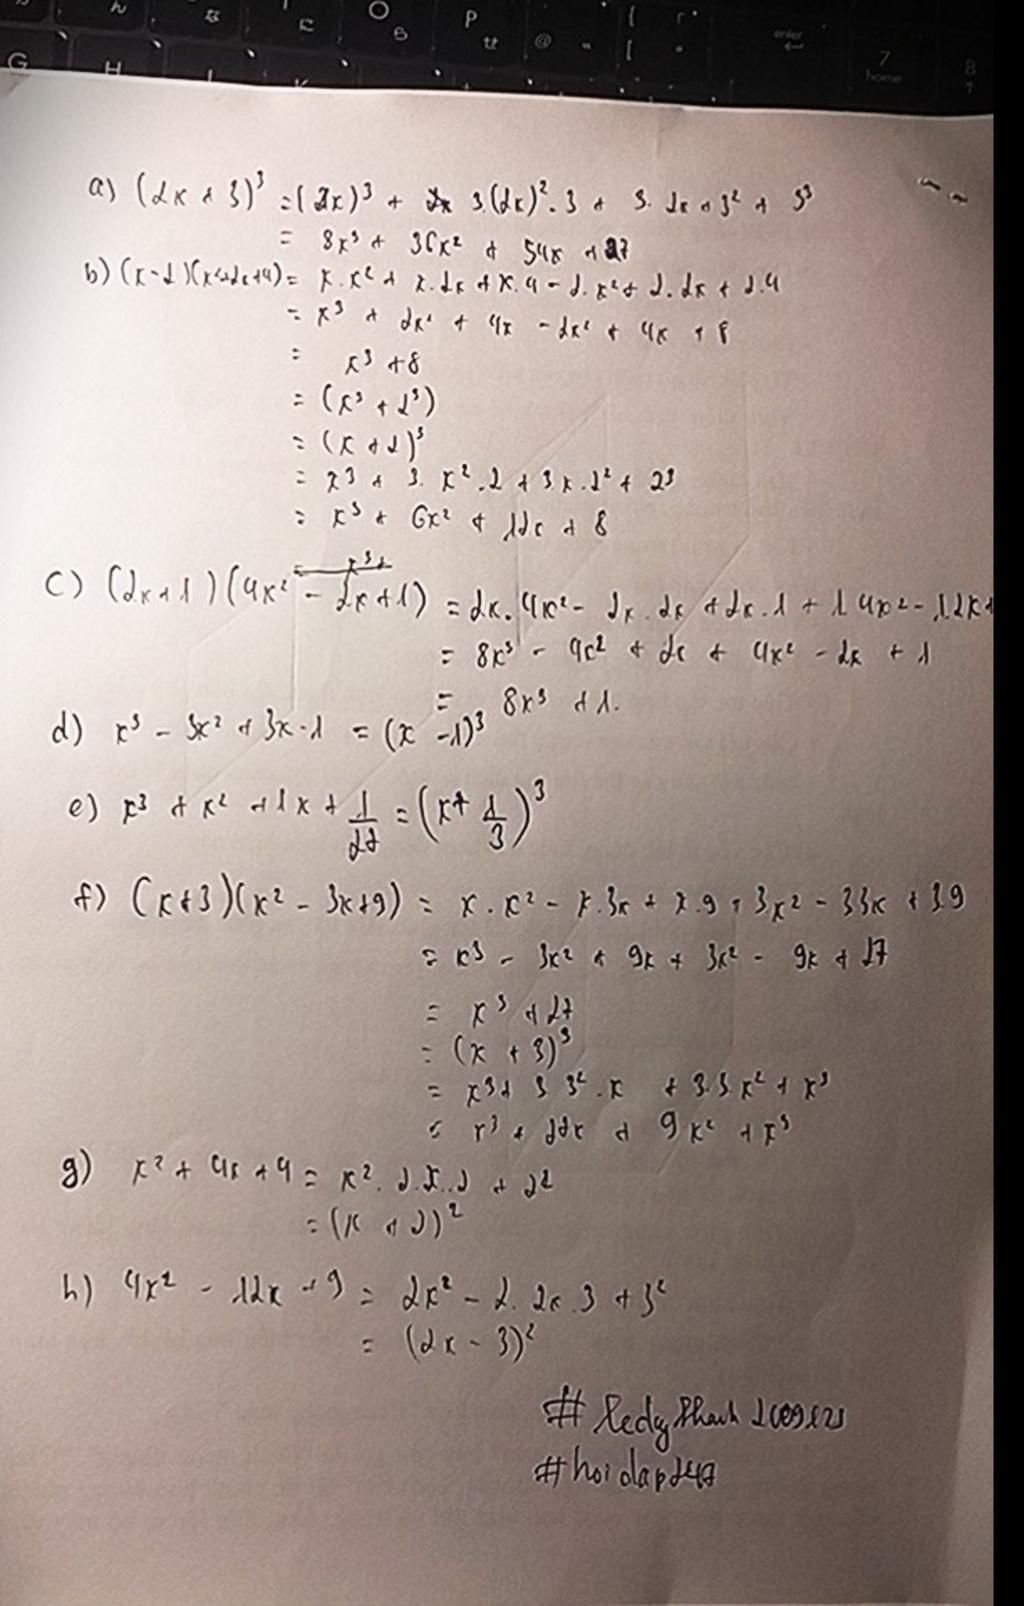 a) (2x + 3)³ = (2x)³ + 3.(2x)².3 + 3.2x+3² + 3³
= 8x³ + 36x² + 54x + 27
b) (x-2)(x²+2x+4) = x.x² + x.2x + x.4 - 2.x² + 2.2x + 2.4
= x³ + 2x² + 4x - 2x² + 4x + 8
= x³ + 8
= (x³ + 2³)
= (x + 2)³
= x³ + 3.x².2 + 3x.2² + 2³
= x³ + 6x² + 12x + 8
c) (2x+1)(4x² - 2x+1) = 2x.4x² - 2x.2x + 2x.1 + 1 4x² - 1.2x+
= 8x³ - 4x² + 2x + 4x² - 2x + 1
= 8x³ + 1.
d) x³ - 3x² + 3x - 1 = (x - 1)³
e) x³ + x² + 1x + 1/27 = (x + 1/3)³
f) (x+3)(x² - 3x+9) = x.x² - x.3x + x.9 + 3x² - 33x + 3.9
= x³ - 3x² + 9x + 3x² - 9x + 27
= x³ + 27
= (x + 3)³
= x³ + 3 3².x + 3.3x² + x³
= x³ + 27x + 9x² + x³
g) x² + 4x + 4 = x².2.x.2 + 2²
= (x + 2)²
h) 4x² - 12x + 9 = 2x² - 2.2x.3 + 3²
= (2x - 3)²
#hoidap247
G
H
P
O
enter
7
home
8